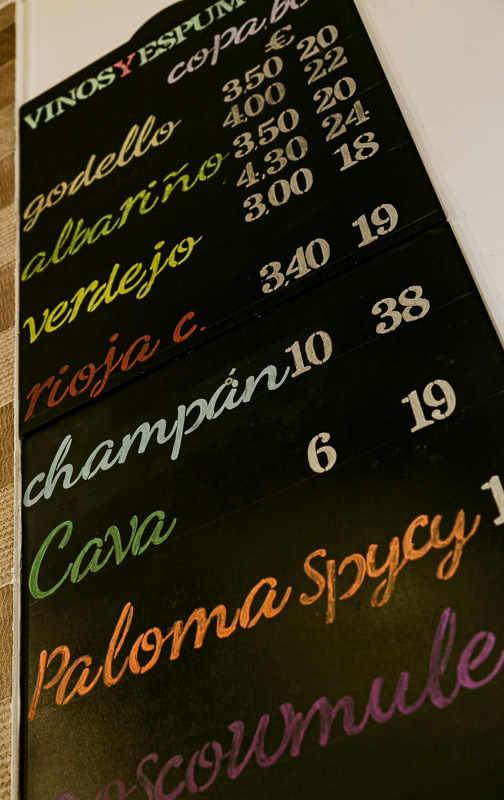 VINOS Y ESPUM
copa.bo
€
godello 3.50 20
4.00 22
albariño 3.50 20
4.30 24
verdejo 3.00 18
rioja c. 3.40 19
champán 10 38
Cava 6 19
Paloma Spycy 1
moscowmule